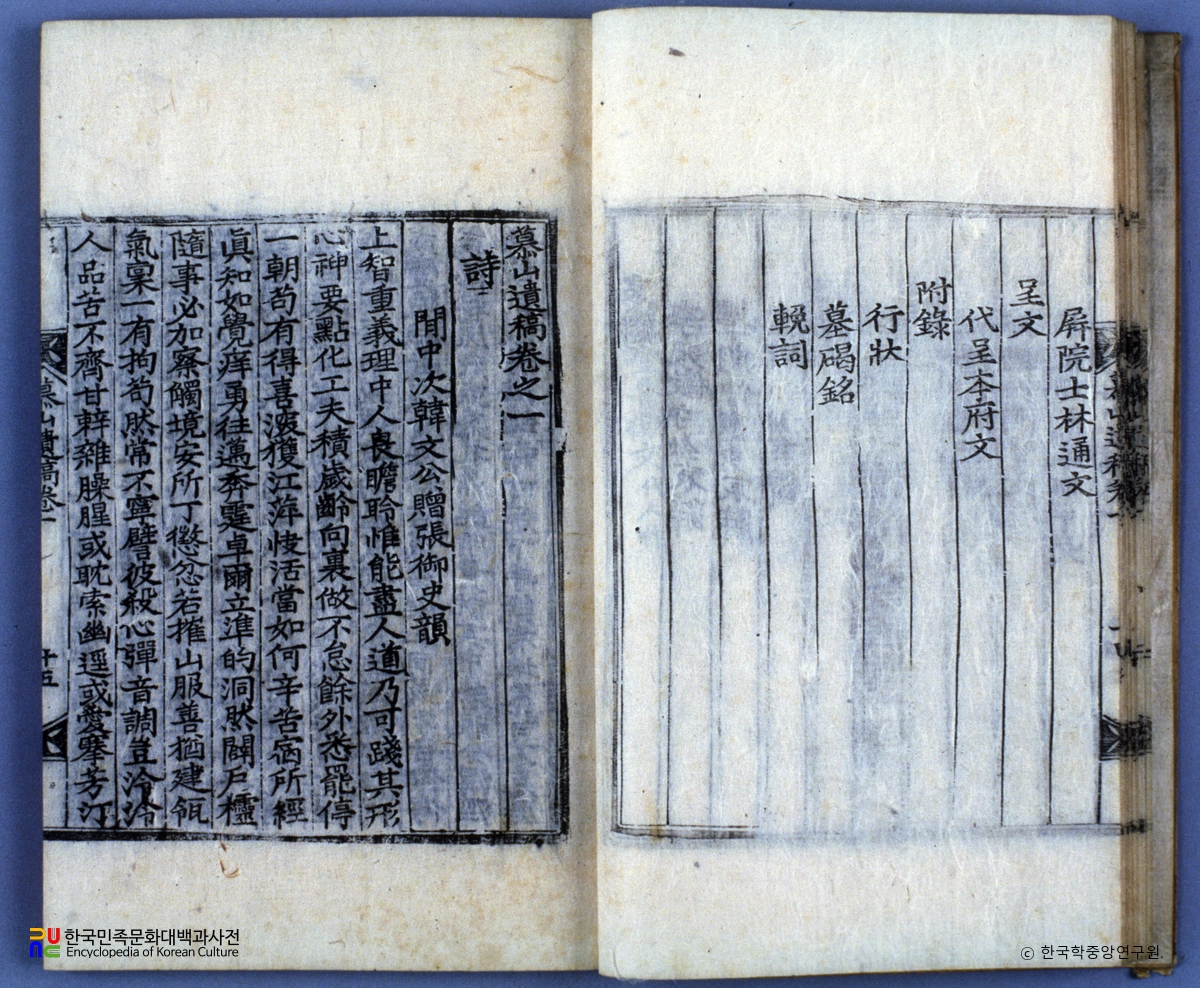 屛院士林通文
呈文
代呈本府文
附錄
行狀
墓碣銘
輓詞
慕山遺稿卷之一
詩
閒中次韓文公贈張御史韻
上智重義理中人喪瞻聆惟能盡人道乃可踐其形
心神要點化工夫積歲齡向裏做不怠餘外悉罷停
一朝苟有得喜溢獲江萍快活當如何辛苦宿所經
眞知如覺痒勇往邁奔霆卓爾立準的洞然闢戶欞
隨事必加察觸境安所丁懲忿若摧山服善猶建瓴
氣稟一有拘苟然常不寧譬彼殺心彈音調豈泠泠
人品苦不齊甘辛雜臊腥或耽索幽逕或愛搴芳汀
慕山遺稿卷一
十五
한국민족문화대백과사전
Encyclopedia of Korean Culture
ⓒ 한국학중앙연구원.